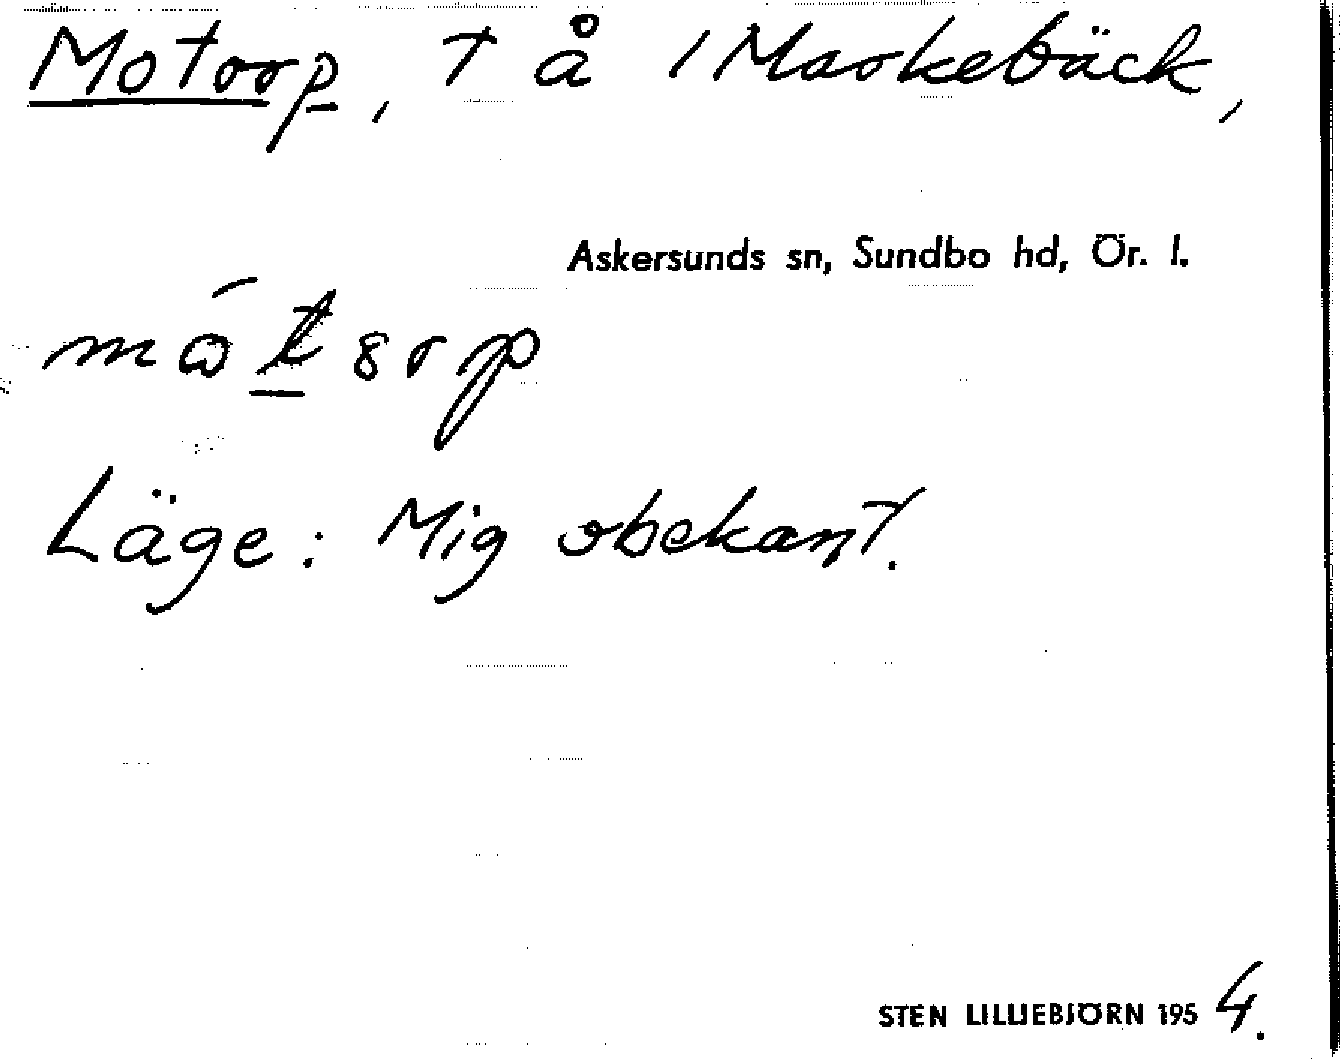 Motorp, T å / Markebäck,
Askersunds sn, Sundbo hd, Ör. l.
Läge: Mig obekant.
STEN LILLIEBJÖRN 1954.